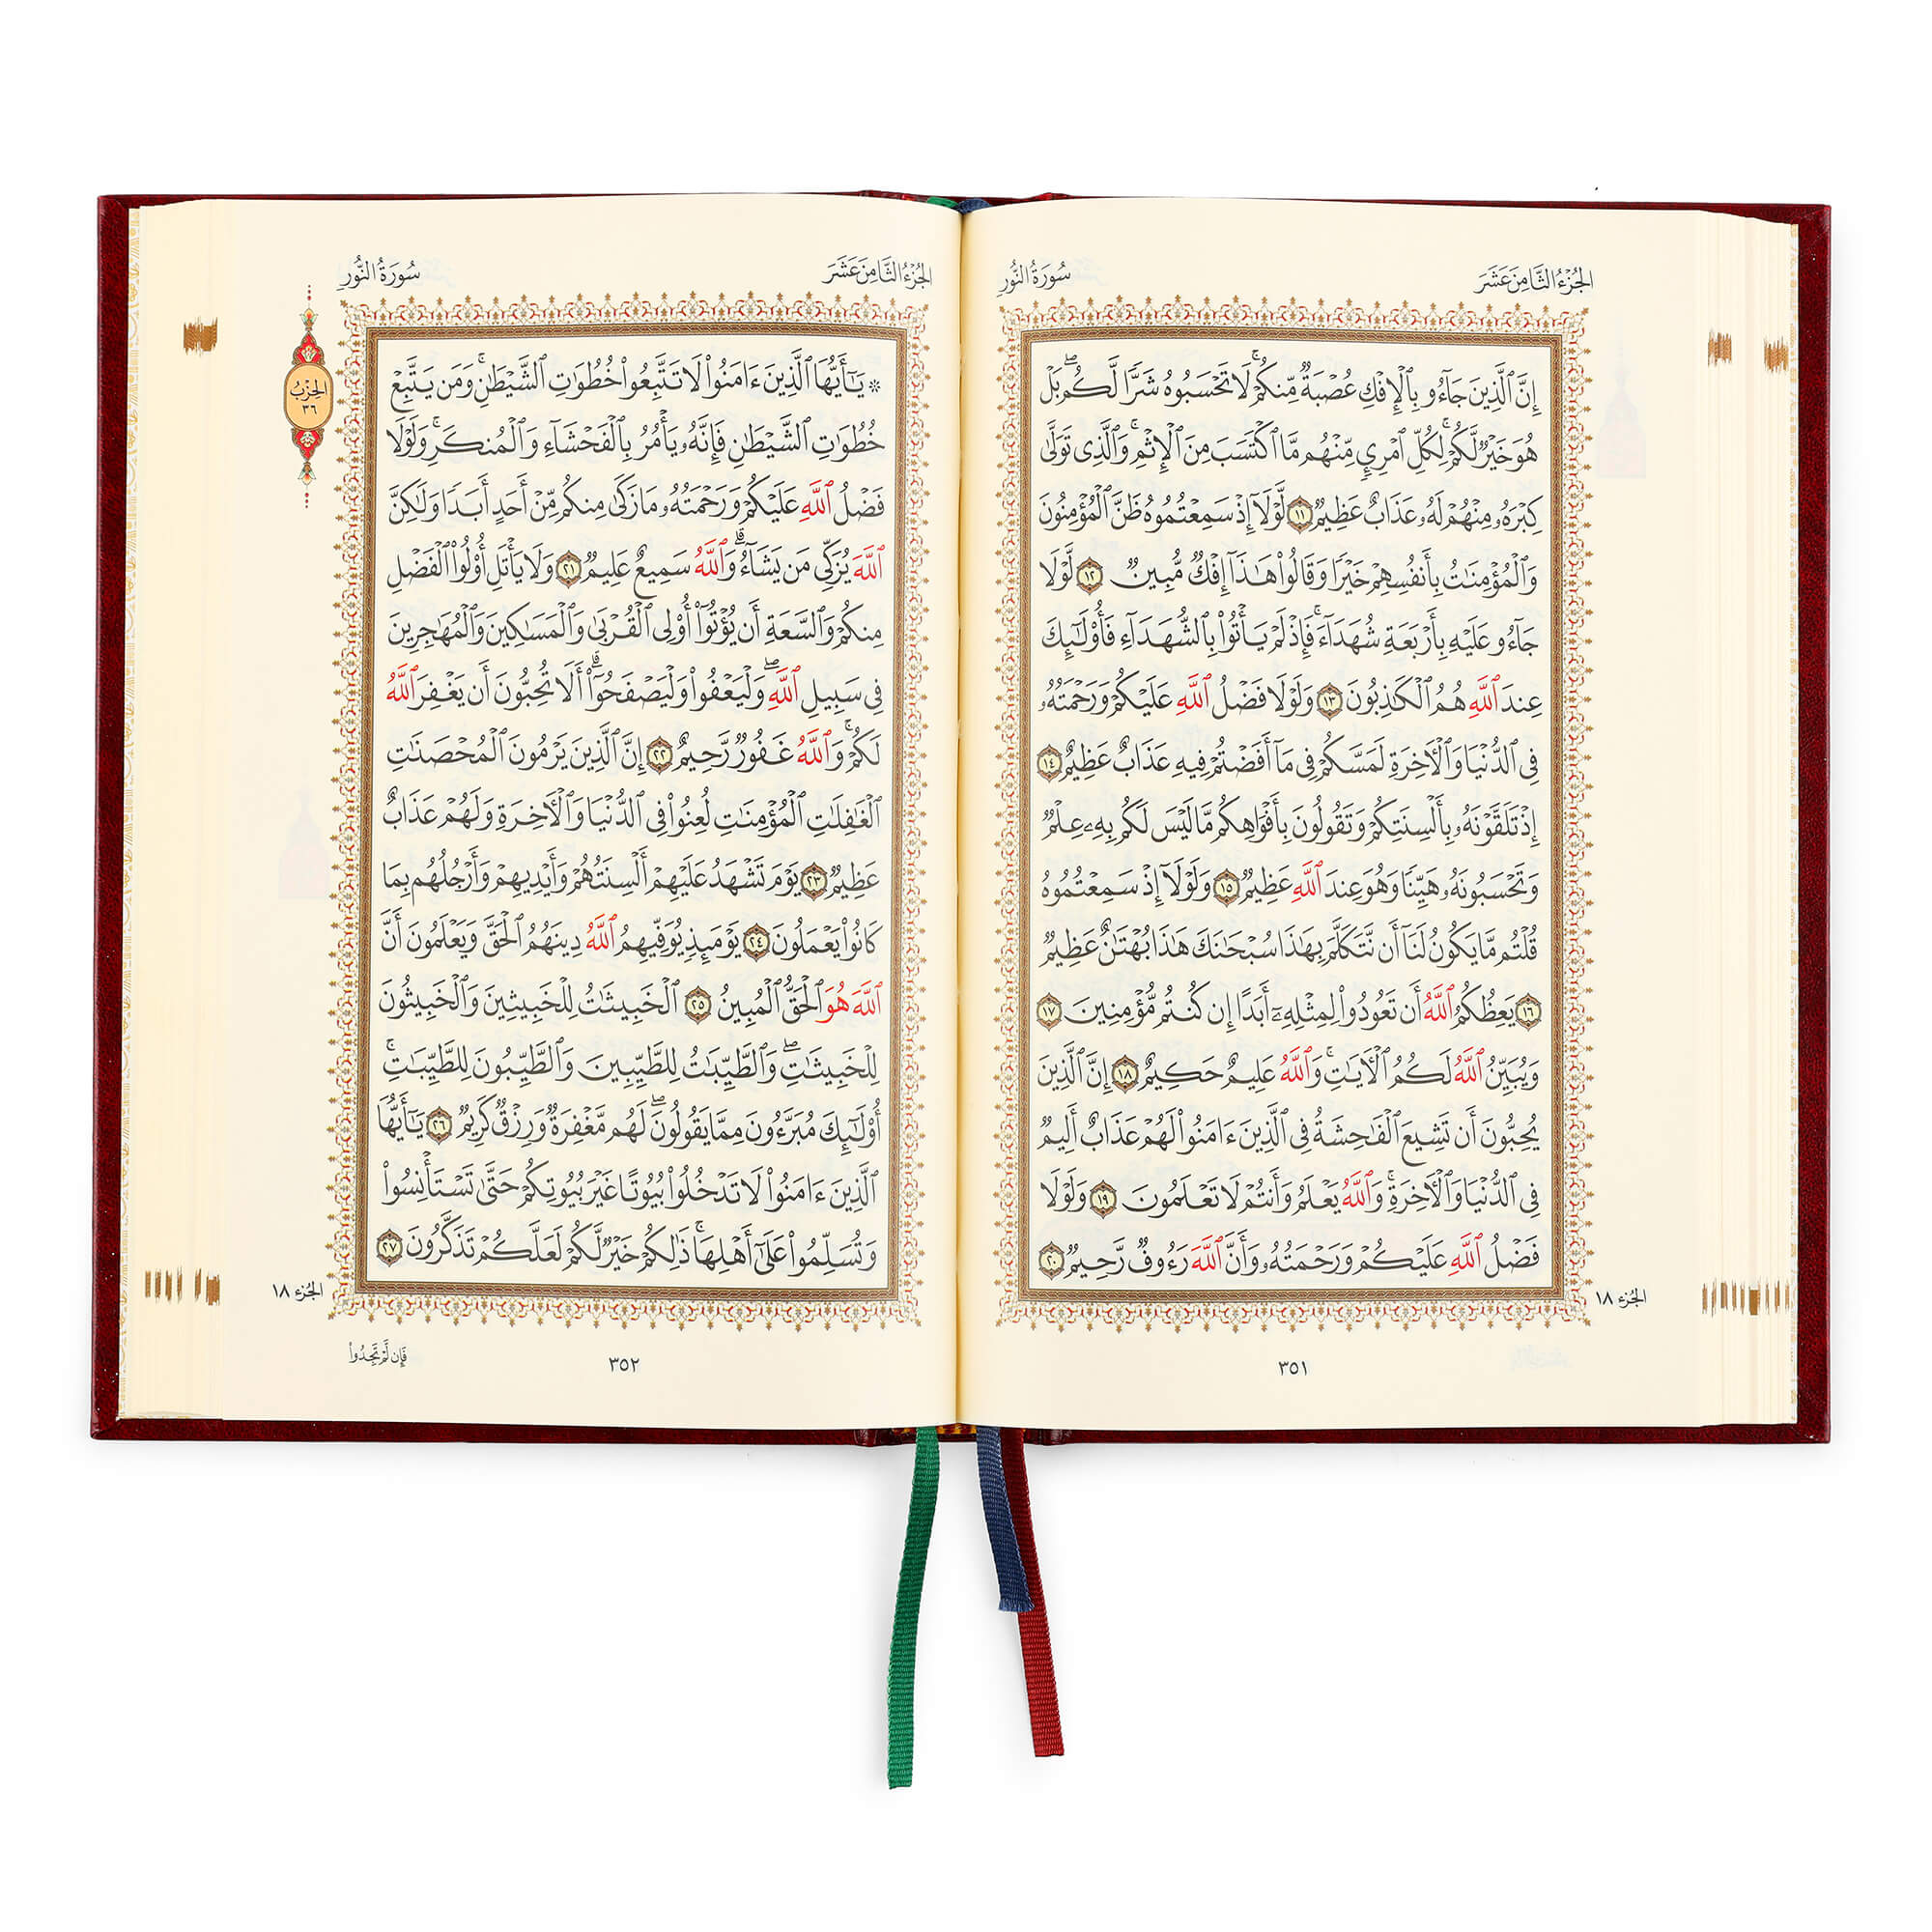 الجُزْءُ الثَّامِنَ عَشَرَ
سُورَةُ النُّورِ
إِنَّ ٱلَّذِينَ جَآءُو بِٱلْإِفْكِ عُصْبَةٌ مِّنكُمْۚ لَا تَحْسَبُوهُ شَرًّا لَّكُمۖ بَلْ
هُوَ خَيْرٌ لَّكُمْۚ لِكُلِّ ٱمْرِئٍ مِّنْهُم مَّا ٱكْتَسَبَ مِنَ ٱلْإِثْمِۚ وَٱلَّذِى تَوَلَّىٰ
كِبْرَهُۥ مِنْهُمْ لَهُۥ عَذَابٌ عَظِيمٌ ١١ لَّوْلَآ إِذْ سَمِعْتُمُوهُ ظَنَّ ٱلْمُؤْمِنُونَ
وَٱلْمُؤْمِنَٰتُ بِأَنفُسِهِمْ خَيْرًا وَقَالُوا۟ هَٰذَآ إِفْكٌ مُّبِينٌ ١٢ لَّوْلَا
جَآءُو عَلَيْهِ بِأَرْبَعَةِ شُهَدَآءَۚ فَإِذْ لَمْ يَأْتُوا۟ بِٱلشُّهَدَآءِ فَأُو۟لَٰٓئِكَ
عِندَ ٱللَّهِ هُمُ ٱلْكَٰذِبُونَ ١٣ وَلَوْلَا فَضْلُ ٱللَّهِ عَلَيْكُمْ وَرَحْمَتُهُۥ
فِى ٱلدُّنْيَا وَٱلْءَاخِرَةِ لَمَسَّكُمْ فِى مَآ أَفَضْتُمْ فِيهِ عَذَابٌ عَظِيمٌ ١٤
إِذْ تَلَقَّوْنَهُۥ بِأَلْسِنَتِكُمْ وَتَقُولُونَ بِأَفْوَاهِكُم مَّا لَيْسَ لَكُم بِهِۦ عِلْمٌ
وَتَحْسَبُونَهُۥ هَيِّنًا وَهُوَ عِندَ ٱللَّهِ عَظِيمٌ ١٥ وَلَوْلَآ إِذْ سَمِعْتُمُوهُ
قُلْتُم مَّا يَكُونُ لَنَآ أَن نَّتَكَلَّمَ بِهَٰذَا سُبْحَٰنَكَ هَٰذَا بُهْتَٰنٌ عَظِيمٌ
١٦ يَعِظُكُمُ ٱللَّهُ أَن تَعُودُوا۟ لِمِثْلِهِۦٓ أَبَدًا إِن كُنتُم مُّؤْمِنِينَ ١٧
وَيُبَيِّنُ ٱللَّهُ لَكُمُ ٱلْءَايَٰتِۚ وَٱللَّهُ عَلِيمٌ حَكِيمٌ ١٨ إِنَّ ٱلَّذِينَ
يُحِبُّونَ أَن تَشِيعَ ٱلْفَٰحِشَةُ فِى ٱلَّذِينَ ءَامَنُوا۟ لَهُمْ عَذَابٌ أَلِيمٌ
فِى ٱلدُّنْيَا وَٱلْءَاخِرَةِۚ وَٱللَّهُ يَعْلَمُ وَأَنتُمْ لَا تَعْلَمُونَ ١٩ وَلَوْلَا
فَضْلُ ٱللَّهِ عَلَيْكُمْ وَرَحْمَتُهُۥ وَأَنَّ ٱللَّهَ رَءُوفٌ رَّحِيمٌ ٢٠
الجُزء ١٨
٣٥١
الجُزْءُ الثَّامِنَ عَشَرَ
سُورَةُ النُّورِ
الحِزْبُ
٣٦
۞ يَٰٓأَيُّهَا ٱلَّذِينَ ءَامَنُوا۟ لَا تَتَّبِعُوا۟ خُطُوَٰتِ ٱلشَّيْطَٰنِۚ وَمَن يَتَّبِعْ
خُطُوَٰتِ ٱلشَّيْطَٰنِ فَإِنَّهُۥ يَأْمُرُ بِٱلْفَحْشَآءِ وَٱلْمُنكَرِۚ وَلَوْلَا
فَضْلُ ٱللَّهِ عَلَيْكُمْ وَرَحْمَتُهُۥ مَا زَكَىٰ مِنكُم مِّنْ أَحَدٍ أَبَدًا وَلَٰكِنَّ
ٱللَّهَ يُزَكِّى مَن يَشَآءُۗ وَٱللَّهُ سَمِيعٌ عَلِيمٌ ٢١ وَلَا يَأْتَلِ أُو۟لُوا۟ ٱلْفَضْلِ
مِنكُمْ وَٱلسَّعَةِ أَن يُؤْتُوٓا۟ أُو۟لِى ٱلْقُرْبَىٰ وَٱلْمَسَٰكِينَ وَٱلْمُهَٰجِرِينَ
فِى سَبِيلِ ٱللَّهِۖ وَلْيَعْفُوا۟ وَلْيَصْفَحُوٓا۟ۗ أَلَا تُحِبُّونَ أَن يَغْفِرَ ٱللَّهُ
لَكُمْۚ وَٱللَّهُ غَفُورٌ رَّحِيمٌ ٢٢ إِنَّ ٱلَّذِينَ يَرْمُونَ ٱلْمُحْصَنَٰتِ
ٱلْغَٰفِلَٰتِ ٱلْمُؤْمِنَٰتِ لُعِنُوا۟ فِى ٱلدُّنْيَا وَٱلْءَاخِرَةِ وَلَهُمْ عَذَابٌ
عَظِيمٌ ٢٣ يَوْمَ تَشْهَدُ عَلَيْهِمْ أَلْسِنَتُهُمْ وَأَيْدِيهِمْ وَأَرْجُلُهُم بِمَا
كَانُوا۟ يَعْمَلُونَ ٢٤ يَوْمَئِذٍ يُوَفِّيهِمُ ٱللَّهُ دِينَهُمُ ٱلْحَقَّ وَيَعْلَمُونَ أَنَّ
ٱللَّهَ هُوَ ٱلْحَقُّ ٱلْمُبِينُ ٢٥ ٱلْخَبِيثَٰتُ لِلْخَبِيثِينَ وَٱلْخَبِيثُونَ
لِلْخَبِيثَٰتِۖ وَٱلطَّيِّبَٰتُ لِلطَّيِّبِينَ وَٱلطَّيِّبُونَ لِلطَّيِّبَٰتِۚ
أُو۟لَٰٓئِكَ مُبَرَّءُونَ مِمَّا يَقُولُونَۖ لَهُم مَّغْفِرَةٌ وَرِزْقٌ كَرِيمٌ ٢٦ يَٰٓأَيُّهَا
ٱلَّذِينَ ءَامَنُوا۟ لَا تَدْخُلُوا۟ بُيُوتًا غَيْرَ بُيُوتِكُمْ حَتَّىٰ تَسْتَأْنِسُوا۟
وَتُسَلِّمُوا۟ عَلَىٰٓ أَهْلِهَاۚ ذَٰلِكُمْ خَيْرٌ لَّكُمْ لَعَلَّكُمْ تَذَكَّرُونَ ٢٧
الجُزء ١٨
فَإِن لَّمْ تَجِدُوا۟
٣٥٢